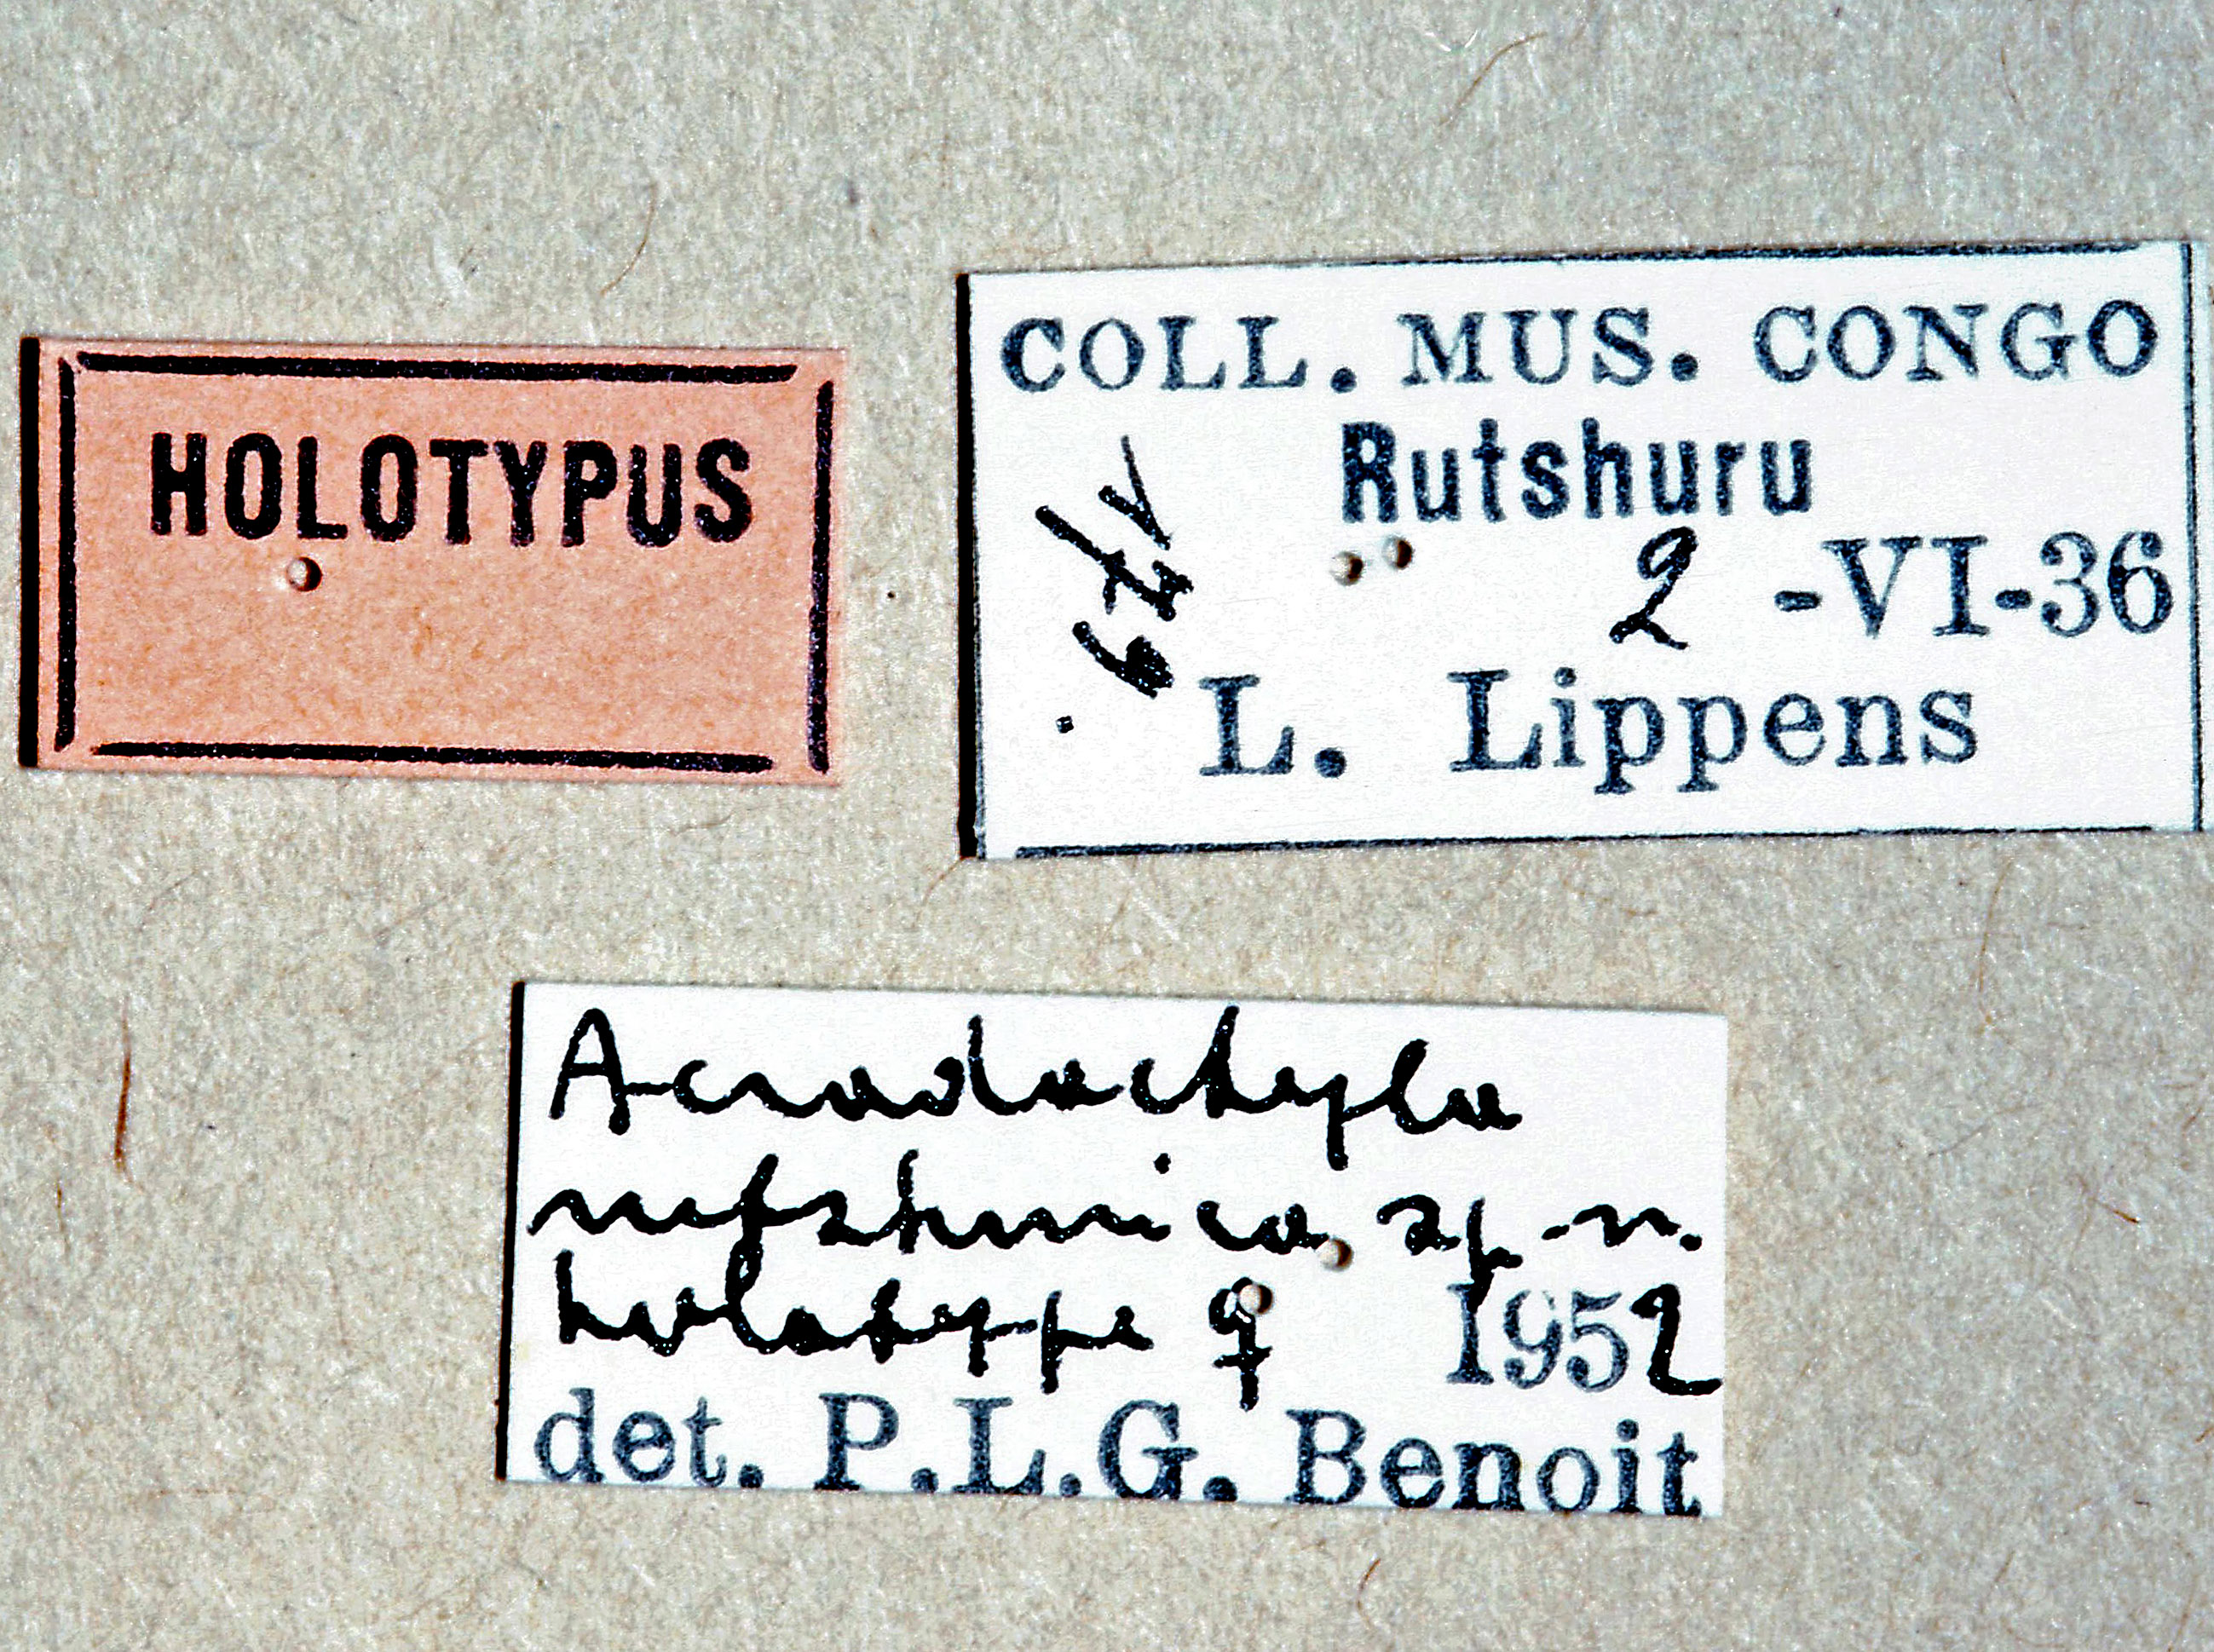 HOLOTYPUS
COLL. MUS. CONGO
Rutshuru
2 -VI-36
L. Lippens
Acrodactyla
rutshurica sp. n.
holotype ♀ 1952
det. P.L.G. Benoit